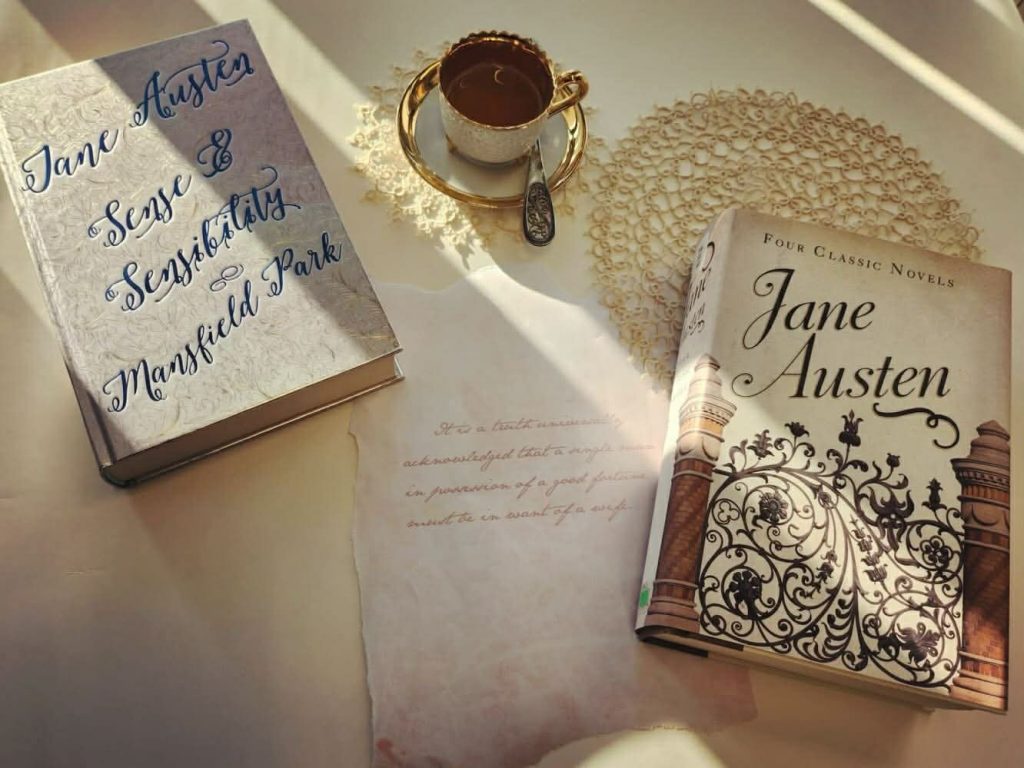 Jane Austen
Sense &
Sensibility
Mansfield Park
It is a truth universally
acknowledged that a single man
in possession of a good fortune
must be in want of a wife.
Four Classic Novels
Jane
Austen